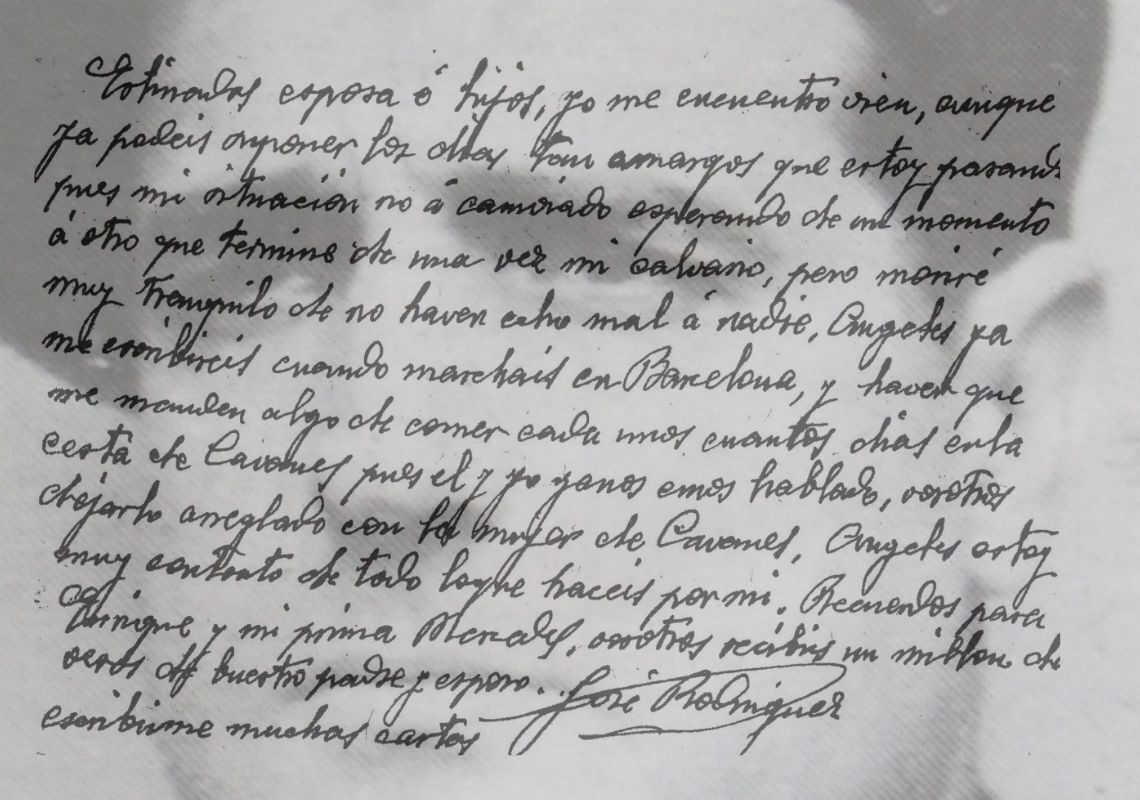 Estimadas esposa é hijos, yo me encuentro vien, aunque
ya podeis suponer los dias tan amargos que estoy pasando
pues mi situación no á camviado esperando de un momento
á otro que termine de una vez mi calvario, pero moriré
muy tranquilo de no haver echo mal á nadie, Angeles ya
me escribireis cuando marchais en Barcelona, y haver que
me manden algo de comer cada unos cuantos dias en la
cesta de Cavanes pues el y yo yanos emos hablado, vosotros
dejarlo arreglado con la mujer de Cavanes, Angeles estoy
muy contento de todo loque haceis por mi. Recuerdos para
Enrique y mi prima Mercedes, vosotros recibiis un millon de
vesos de buestro padre y esposo. José Rodriguez
escribirme muchas cartas